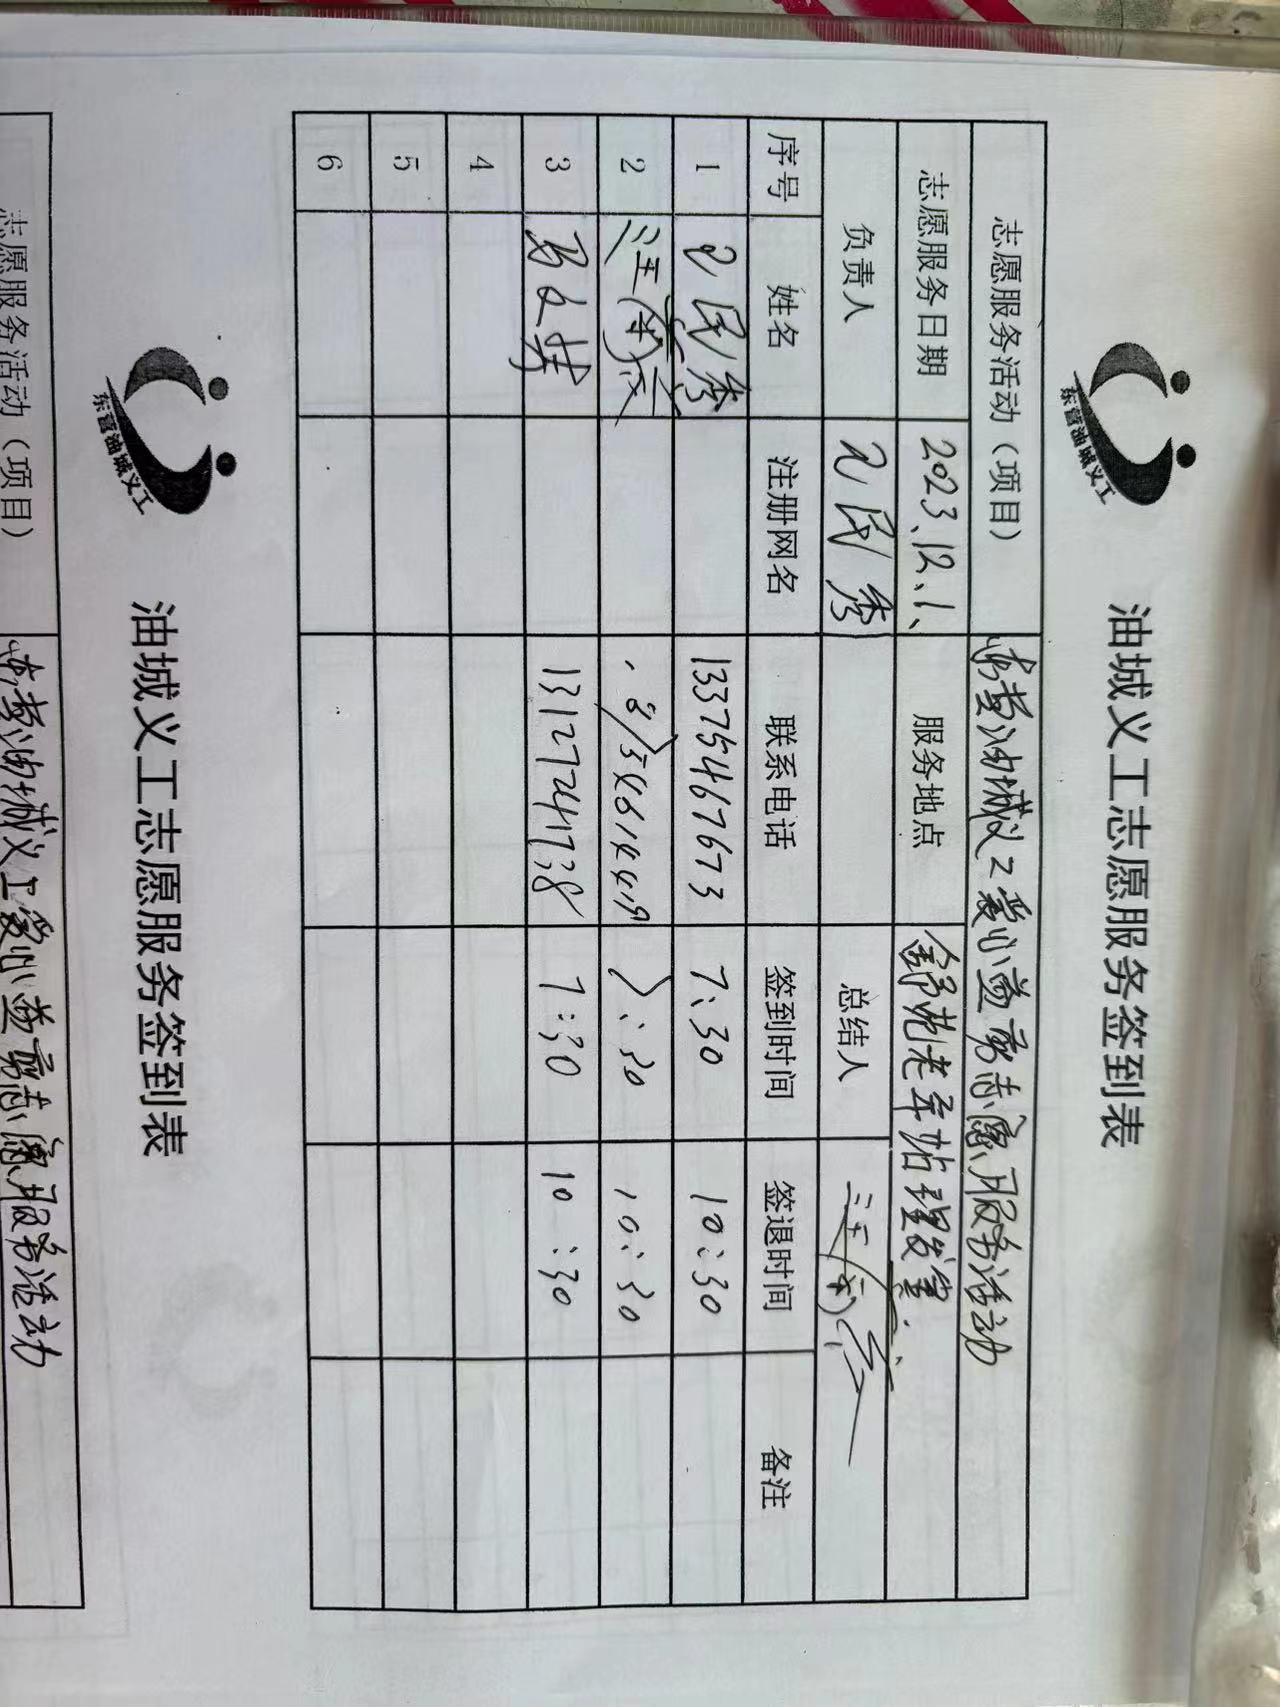 东营油城义工
油城义工志愿服务签到表
志愿服务活动（项目） 东营油城义工爱心益剪志愿服务活动
志愿服务日期 2023.12.1、 服务地点 老年站理发室
负责人 民秀 总结人
序号 姓名 注册网名 联系电话 签到时间 签退时间 备注
1 民秀 13375467673 7:30 10:30
2 7:30 10:30
3 13127241738 7:30 10:30
4
5
6
东营油城义工
油城义工志愿服务签到表
志愿服务活动（项目） 东营油城义工爱心益剪志愿服务活动